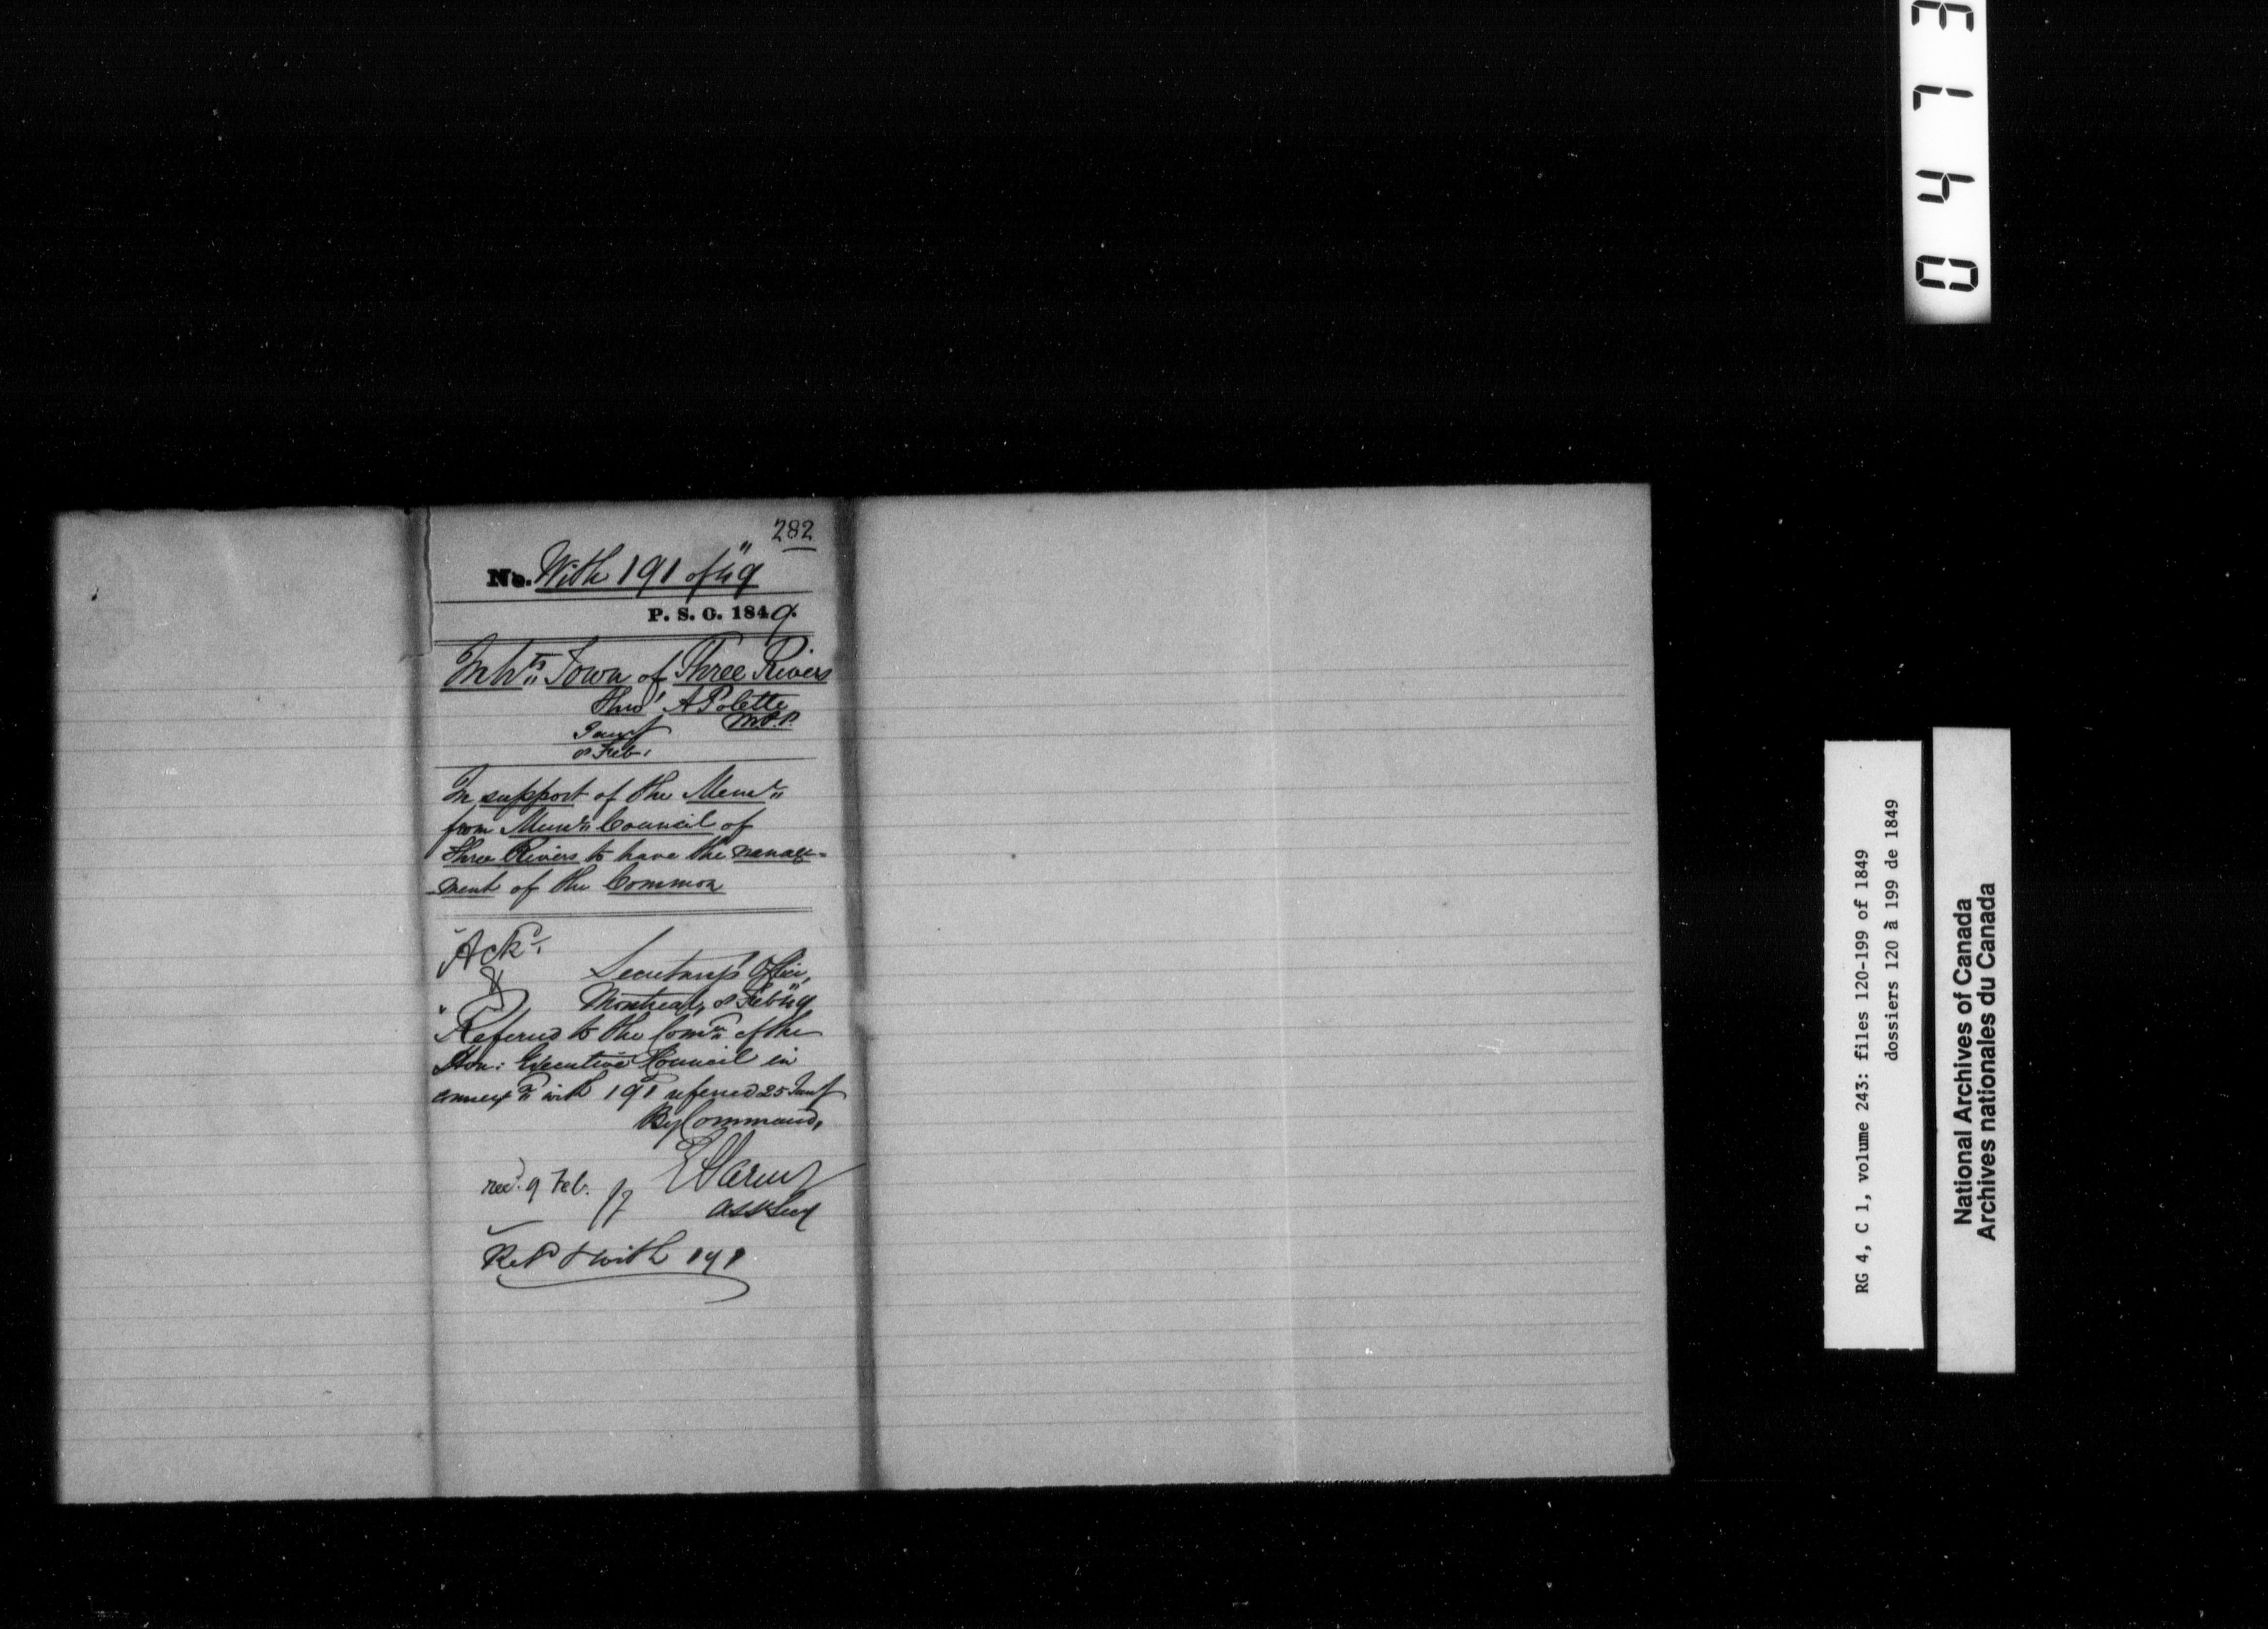 282
No. With 191 of "49
P. S. O. 1849.
Inhts Town of Three Rivers
Thro' A Polette
M.P.P.
Jany
8 Feb.
In support of the Meml
from Munl Council of
Three Rivers to have the manage-
-ment of the Common
Ackd.
Secretary's Office,
Montreal, 8 Feb "49
Referred to the Comee of the
Hon: Executive Council in
connexn with 191 referred 25 Jany
By Command,
recd. 9 Feb.
Asst Secy
Retd & with 191
0473
RG 4, C 1, volume 243: files 120-199 of 1849
dossiers 120 à 199 de 1849
National Archives of Canada
Archives nationales du Canada